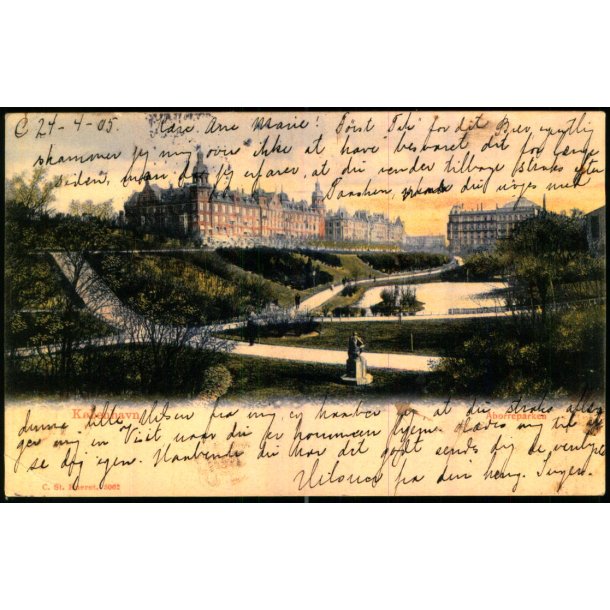 C 24-4-05. Kære Ane Marie! Først Tak for dit Brev, egentlig
skammer jeg mig over ikke at have besvaret det for længe
siden, men da jeg erfarer, at du vender tilbage straks efter
Paasken, du unges med
København
Aborreparken
denne lille Hilsen fra mig, og haaber jeg, at du straks aflæg
ger mig en Visit naar du er kommen hjem. Glæder mig til at
se dig igen. Haabende du har det godt sendes dig de venligste
Hilsner fra din heng. Inger.
C. St. 5062